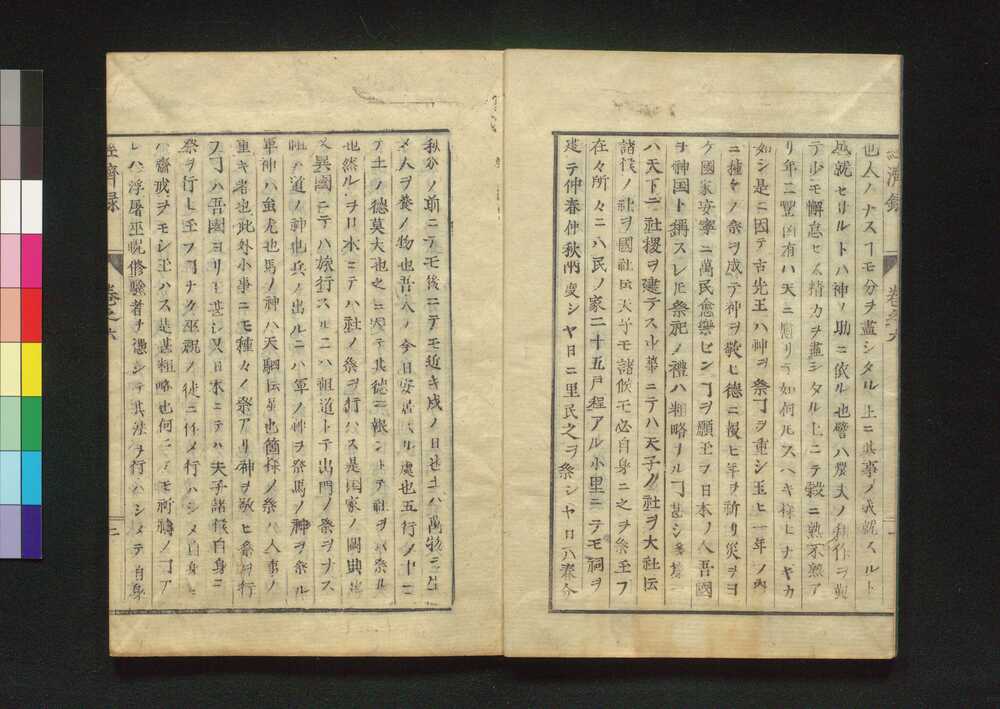 經濟録 卷之六
也人ノナスヿモ分ヲ盡シタル上ニ其事ノ成就スルト
成就セザルトハ神ノ助ニ依ル也譬ハ農夫ノ耕作ヲ
テ少モ懈怠セズ精力ヲ盡シタル上ニテ穀ニ熟不熟ア
リ年ニ豐凶有ハ天ニ如何ルスヘキ様ヒナキカ
如シ是ニ因テ古先王ハ神ヲ祭ヿヲ重シ玉ヒ一年ノ内
ニ種々ノ祭ヲ成テ神ヲ敬ヒ德ニ報ヒ年ヲ祈リ災ヲヨ
ケ國家安寧ニ萬民ヿヲ願玉ヲ日本ノ人吾國
ヲ神国ト稱スレ𪜈祭祀ノ禮ハ粗略ナルヿ甚シ
ハ天下ニ社稷ヲ建テス中華ニテハ天子ノ社ヲ大社ト云
諸侯ノ社ヲ國社ト云天子モ諸侯モ必自身ニ之ヲ祭玉フ
在々所々ニハ民ノ家二十五戸程アル小里ニテモ祠ヲ
建テ仲春仲秋兩度シヤ日ニ里民之ヲ祭シヤ日ハ春分
秋分ノ前ニテモ後ニテモ近キ戊ノ日也土ハ萬物ヲ生
メ人ヲ養ノ物也吾人ノ今日安居スル處也五行ノ中ニ
テ土ノ德莫大也之ニ因テ其德ニ報ントテ社ヲ祭ル
也然ルヲ日本ニテハ社ノ祭ヲ行ハス是国家ノ闕典也
又異國ニテハ旅行スルニハ祖道トテ出門ノ祭ヲナス
祖ハ道ノ神也兵ノ出ルニハ軍ノ神ヲ祭馬ノ神ヲ祭ル
軍神ハ蚩尤也馬ノ神ハ天駟ト云星也箇様ノ祭ハ人事ノ
重キ者也此外小事ニモ種々ノ祭アリ神ヲ敬ヒ祭ヲ行
フヿハ吾國ヨリモ甚シ又日本ニテハ天子諸侯自身ニ
祭ヲ行ヒ玉フヿナク巫祝ノ徒ニ行ハシメ自身ニ
ハ齋戒ヲモシ玉ハス是甚粗略也何ニテモ祈禱ノヿア
レハ浮屠巫祝修驗者ヲ憑シテ其法ヲ行ハシメテ自身
經濟録 卷之六 二